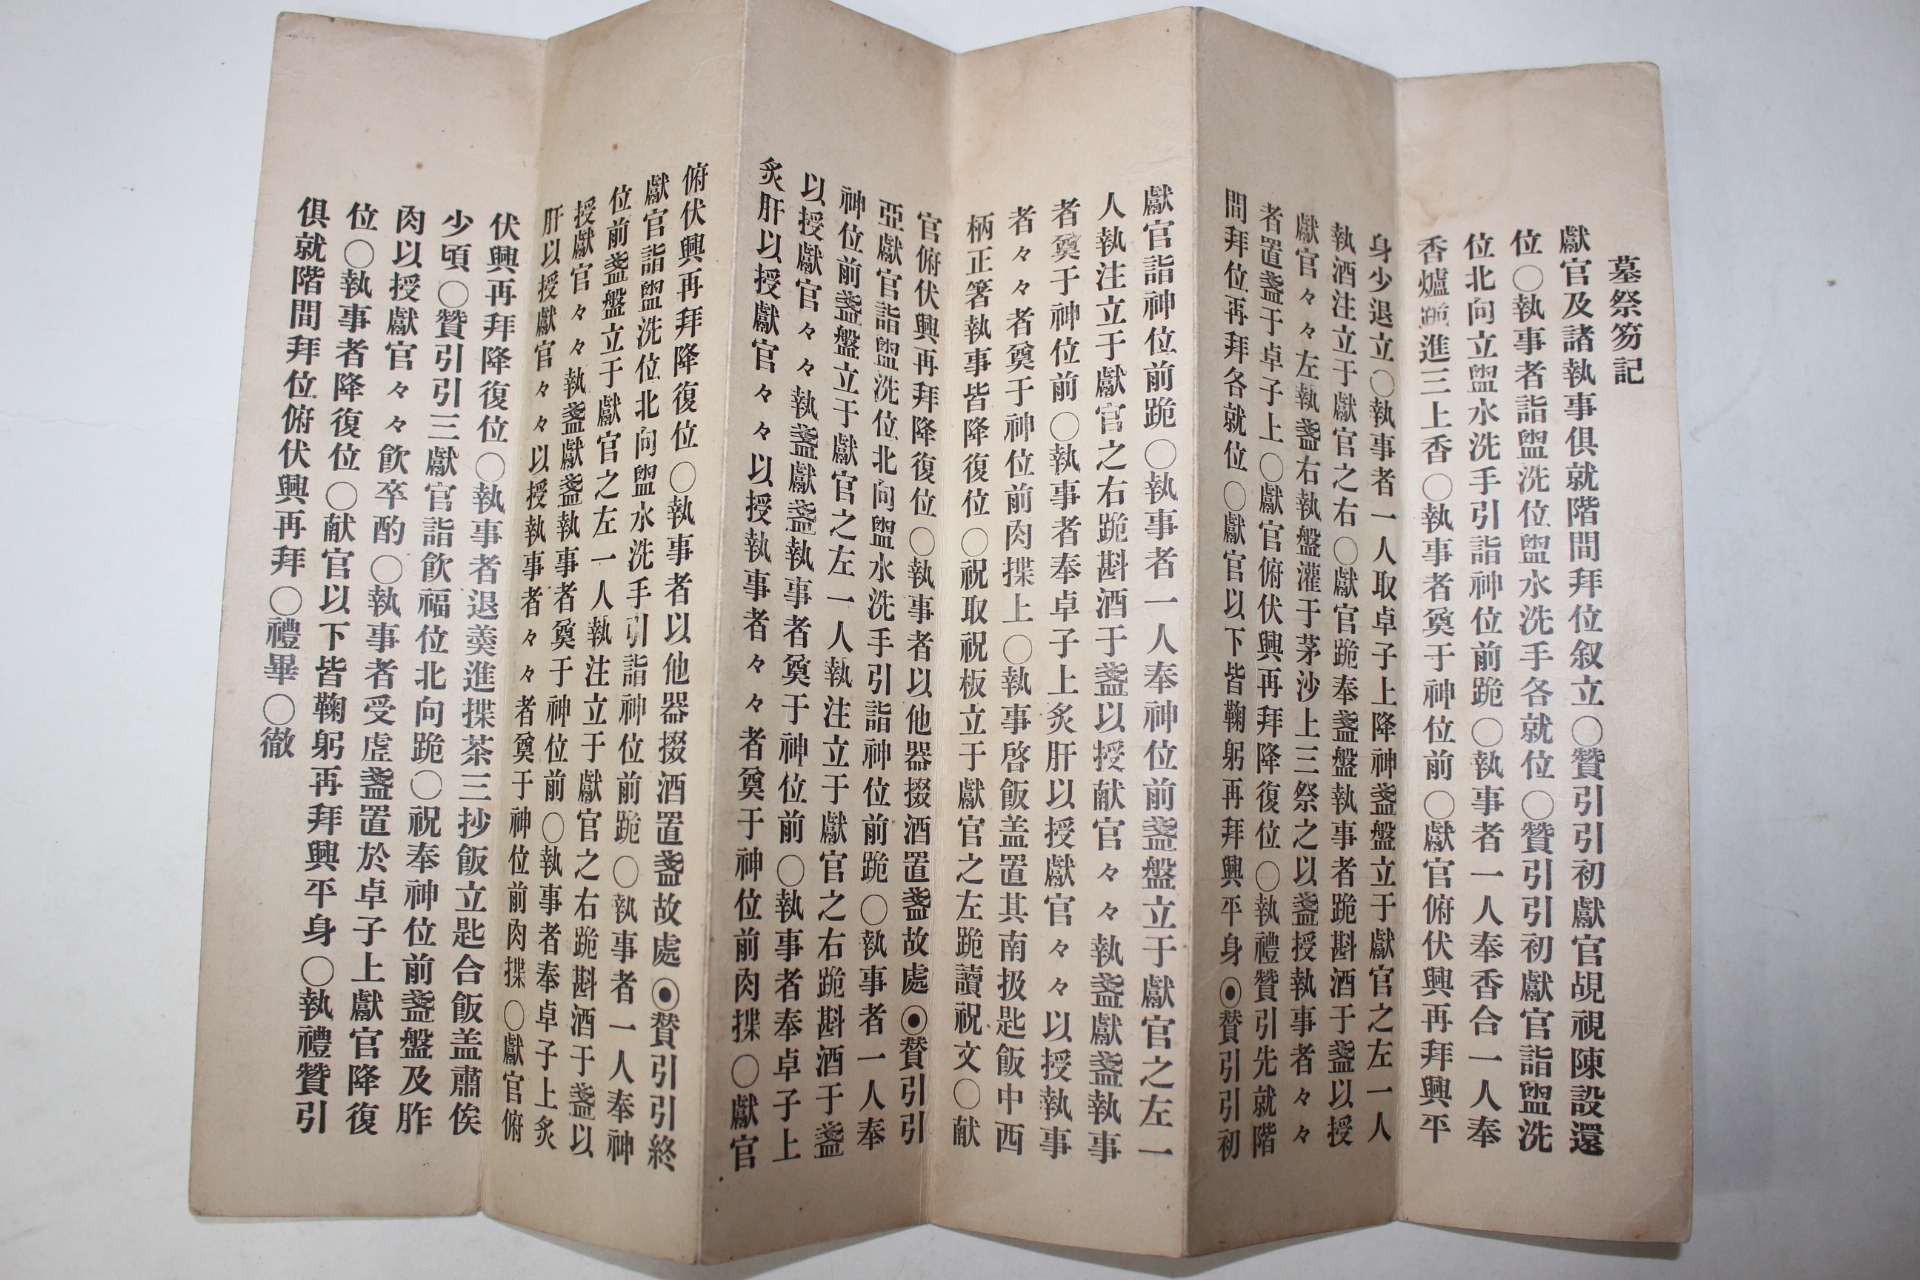 墓祭笏記
獻官及諸執事俱就階間拜位叙立○贊引引初獻官覘視陳設還
位○執事者詣盥洗位盥水洗手各就位○贊引引初獻官詣盥洗
位北向立盥水洗手引詣神位前跪○執事者一人奉香合一人奉
香爐跪進三上香○執事者奠于神位前○獻官俯伏興再拜興平
身少退立○執事者一人取卓子上降神盞盤立于獻官之左一人
執酒注立于獻官之右○獻官跪奉盞盤執事者跪斟酒于盞以授
獻官々々左執盞右執盤灌于茅沙上三祭之以盞授執事者々々
者置盞于卓子上○獻官俯伏興再拜降復位○執禮贊引先就階
間拜位再拜各就位○獻官以下皆鞠躬再拜興平身◉贊引引初
獻官詣神位前跪○執事者一人奉神位前盞盤立于獻官之左一
人執注立于獻官之右跪斟酒于盞以授献官々々執盞獻盞執事
者奠于神位前○執事者奉卓子上炙肝以授獻官々々以授執事
者々々者奠于神位前肉揲上○執事啓飯盖置其南扱匙飯中西
柄正箸執事皆降復位○祝取祝板立于獻官之左跪讀祝文○献
官俯伏興再拜降復位○執事者以他器掇酒置盞故處◉贊引引
亞獻官詣盥洗位北向盥水洗手引詣神位前跪○執事者一人奉
神位前盞盤立于獻官之左一人執注立于獻官之右跪斟酒于盞
以授獻官々々執盞獻盞執事者奠于神位前○執事者奉卓子上
炙肝以授獻官々々以授執事者々々者奠于神位前肉揲○獻官
俯伏興再拜降復位○執事者以他器掇酒置盞故處◉贊引引終
獻官詣盥洗位北向盥水洗手引詣神位前跪○執事者一人奉神
位前盞盤立于獻官之左一人執注立于獻官之右跪斟酒于盞以
授獻官々々執盞獻盞執事者奠于神位前○執事者奉卓子上炙
肝以授獻官々々以授執事者々々者奠于神位前肉揲○獻官俯
伏興再拜降復位○執事者退羮進揲茶三抄飯立匙合飯盖肅俟
少頃○贊引引三獻官詣飮福位北向跪○祝奉神位前盞盤及胙
肉以授獻官々々飮卒酌○執事者受虛盞置於卓子上獻官降復
位○執事者降復位○献官以下皆鞠躬再拜興平身○執禮贊引
俱就階間拜位俯伏興再拜○禮畢○徹